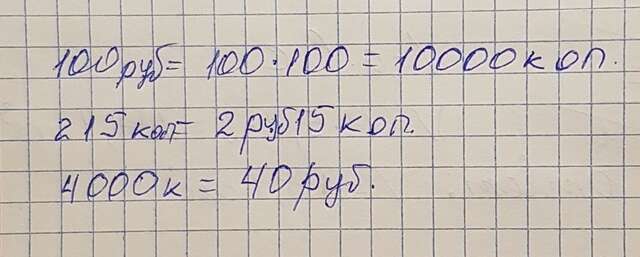 100руб= 100·100 = 10000коп.
215коп= 2руб15коп.
4000к = 40руб.